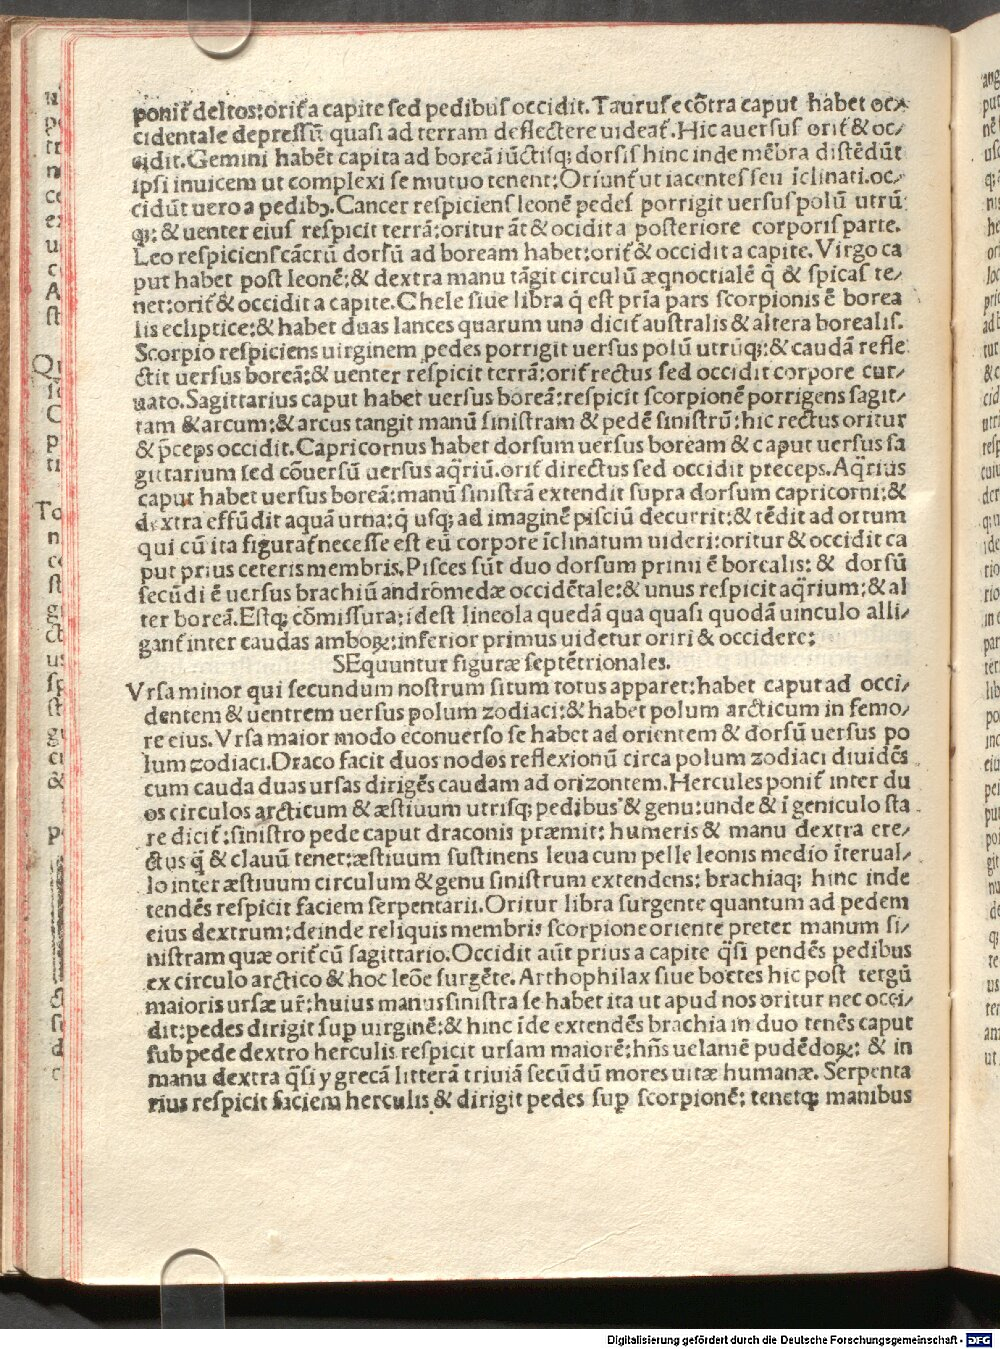 ponit̃ deltos:orit̃ a capite ſed pedibuſ occidit. Tauruſ e cõtra caput habet oc⸗
cidentale depreſſũ quaſi ad terram deflectere uideat̃. Hic auerſuſ orit̃ & oc⸗
cidit. Gemini habẽt capita ad boreã iũctiſq; dorſiſ hinc inde mẽbra diſtẽdũt
ipſi inuicem ut complexi ſe mutuo tenent: Oriunt̃ ut iacenteſ ſeu ĩclinati. oc⸗
cidũt uero a pedibꝫ. Cancer reſpicienſ leonẽ pedeſ porrigit uerſuſ polũ utrũ
q;: & uenter eiuſ reſpicit terrã: oritur ãt & ocidit a poſteriore corporiſ parte.
Leo reſpicienſ cãcrũ dorſũ ad boream habet: orit̃ & occidit a capite. Virgo ca
put habet poſt leonẽ: & dextra manu tãgit circulũ æqnoctialẽ q̃ & ſpicaſ te⸗
net: orit̃ & occidit a capite. Chele ſiue libra q̃ eſt prĩa pars ſcorpionis ẽ borea
lis ecliptice: & habet duas lances quarum una dicit̃ auſtralis & altera borealiſ.
Scorpio reſpiciens uirginem pedes porrigit uerſus polũ utrũq;: & caudã refle
ctit uerſus boreã: & uenter reſpicit terrã: orit̃ rectus ſed occidit corpore cur⸗
uato. Sagittarius caput habet uerſus boreã: reſpicit ſcorpionẽ porrigens ſagit⸗
tam & arcum: & arcus tangit manũ ſiniſtram & pedẽ ſiniſtrũ: hic rectus oritur
& p̃ceps occidit. Capricornus habet dorſum uerſus boream & caput uerſus ſa
gittarium ſed cõuerſũ uerſus aq̃riũ. orit̃ directus ſed occidit preceps. Aq̃rius
caput habet uerſus boreã: manũ ſiniſtrã extendit ſupra dorſum capricorni: &
dextra effũdit aquã urna: q̃ uſq; ad imaginẽ piſciũ decurrit: & tẽdit ad ortum
qui cũ ita figurat̃ neceſſe eſt eũ corpore ĩclinatum uideri: oritur & occidit ca
put prius ceteris membris. Piſces ſũt duo dorſum primi ẽ borealis: & dorſũ
ſecũdi ẽ uerſus brachiũ andromedæ occidẽtale: & unus reſpicit aq̃rium: & al
ter boreã. Eſtq; cõmiſſura: ideſt lineola quedã qua quaſi quodã uinculo alli⸗
gant̃ inter caudas amboꝝ: inferior primus uidetur oriri & occidere:
SEquuntur figuræ ſeptẽtrionales.
Vrſa minor qui ſecundum noſtrum ſitum totus apparet: habet caput ad occi⸗
dentem & uentrem uerſus polum zodiaci: & habet polum arcticum in femo⸗
re eius. Vrſa maior modo econuerſo ſe habet ad orientem & dorſũ uerſus po
lum zodiaci. Draco facit duos nodos reflexionũ circa polum zodiaci diuidẽs
cum cauda duas urſas dirigẽs caudam ad orizontem. Hercules ponit̃ inter du
os circulos arcticum & æſtiuum utriſq; pedibus & genu: unde & ĩ geniculo ſta
re dicit̃: ſiniſtro pede caput draconis præmit: humeris & manu dextra ere⸗
ctus q̃ & clauũ tenet: æſtiuum ſuſtinens leua cum pelle leonis medio ĩterual⸗
lo inter æſtiuum circulum & genu ſiniſtrum extendens: brachiaq; hinc inde
tendẽs reſpicit faciem ſerpentarii. Oritur libra ſurgente quantum ad pedem
eius dextrum: deinde reliquis membris ſcorpione oriente preter manum ſi⸗
niſtram quæ orit̃ cũ ſagittario. Occidit aũt prius a capite q̃ſi pendẽs pedibus
ex circulo arctico & hoc leõe ſurgẽte. Arthophilax ſiue boetes hic poſt tergũ
maioris urſæ ur̃: huius manus ſiniſtra ſe habet ita ut apud nos oritur nec occi⸗
dit: pedes dirigit ſuꝑ uirginẽ: & hinc ĩde extendẽs brachia in duo tenẽs caput
ſub pede dextro herculis reſpicit urſam maiorẽ: hñs uelamẽ pudẽdoꝝ: & in
manu dextra q̃ſi y grecã litterã triuiã ſecũdũ mores uitæ humanæ. Serpenta
rius reſpicit faciem herculis & dirigit pedes ſuꝑ ſcorpionẽ: tenetq; manibus
Digitalisierung gefördert durch die Deutsche Forschungsgemeinschaft - DFG